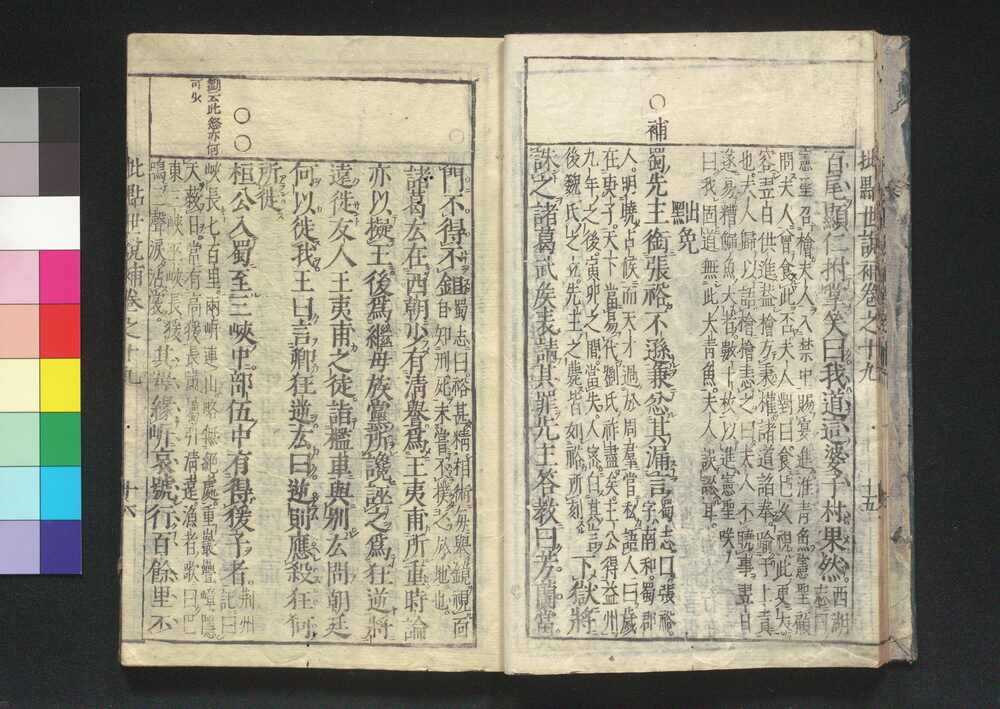 百尾顯仁拊掌笑曰我道這婆子村果然西湖志曰
憲聖召檜夫人入禁中賜宴進淮青魚憲聖顧
問夫人曾食此否夫人對曰食已久視此更大
容翌日供進益檜方秉權諸道諸奉喻于上眞
也夫人歸以語檜恚之曰夫人不曉事翌日
遂易糟鯶魚大者數十枚以進憲聖咲
曰我固道無此大青魚夫人誤耳
黜免
補
蜀先主銜張裕不遜兼忿其漏言蜀志曰張裕
字南和蜀郡
人明曉占候而天才過於周羣嘗私語人曰歲
在庚子天下當易代劉氏祚盡矣主公得益州
九年之後寅卯之間當失人密白其言下獄將
誅之諸葛武矦表請其罪先主答教曰芳蘭當
後魏氏之立先主之薨皆如裕所刻
門不得不鉏蜀志曰裕甚精相術每舉鏡視面
自知刑死未嘗不撲之於地也
諸葛厷在西朝少有清譽爲王夷甫所重時論
亦以擬王後爲繼母族黨所讒誣之爲狂逆將
遠徙友人王夷甫之徒詣檻車與別厷問朝廷
何以徙我王曰言卿狂逆厷曰逆則應殺狂何
所徙
劉云此怒亦何
可少
桓公入蜀至三峽中部伍中有得猨子者荊州
記曰
峽長七百里兩岍連山略無絕處重巖疊嶂隱
天蔽日常有高猨長嘯屬引清遠漁者歌曰巴
東三峽巫峽長猨
鳴一聲淚沾裳其母緣岍哀號行百餘里不
批點世說補卷之十九
十六
批點世說補卷之十九
十五